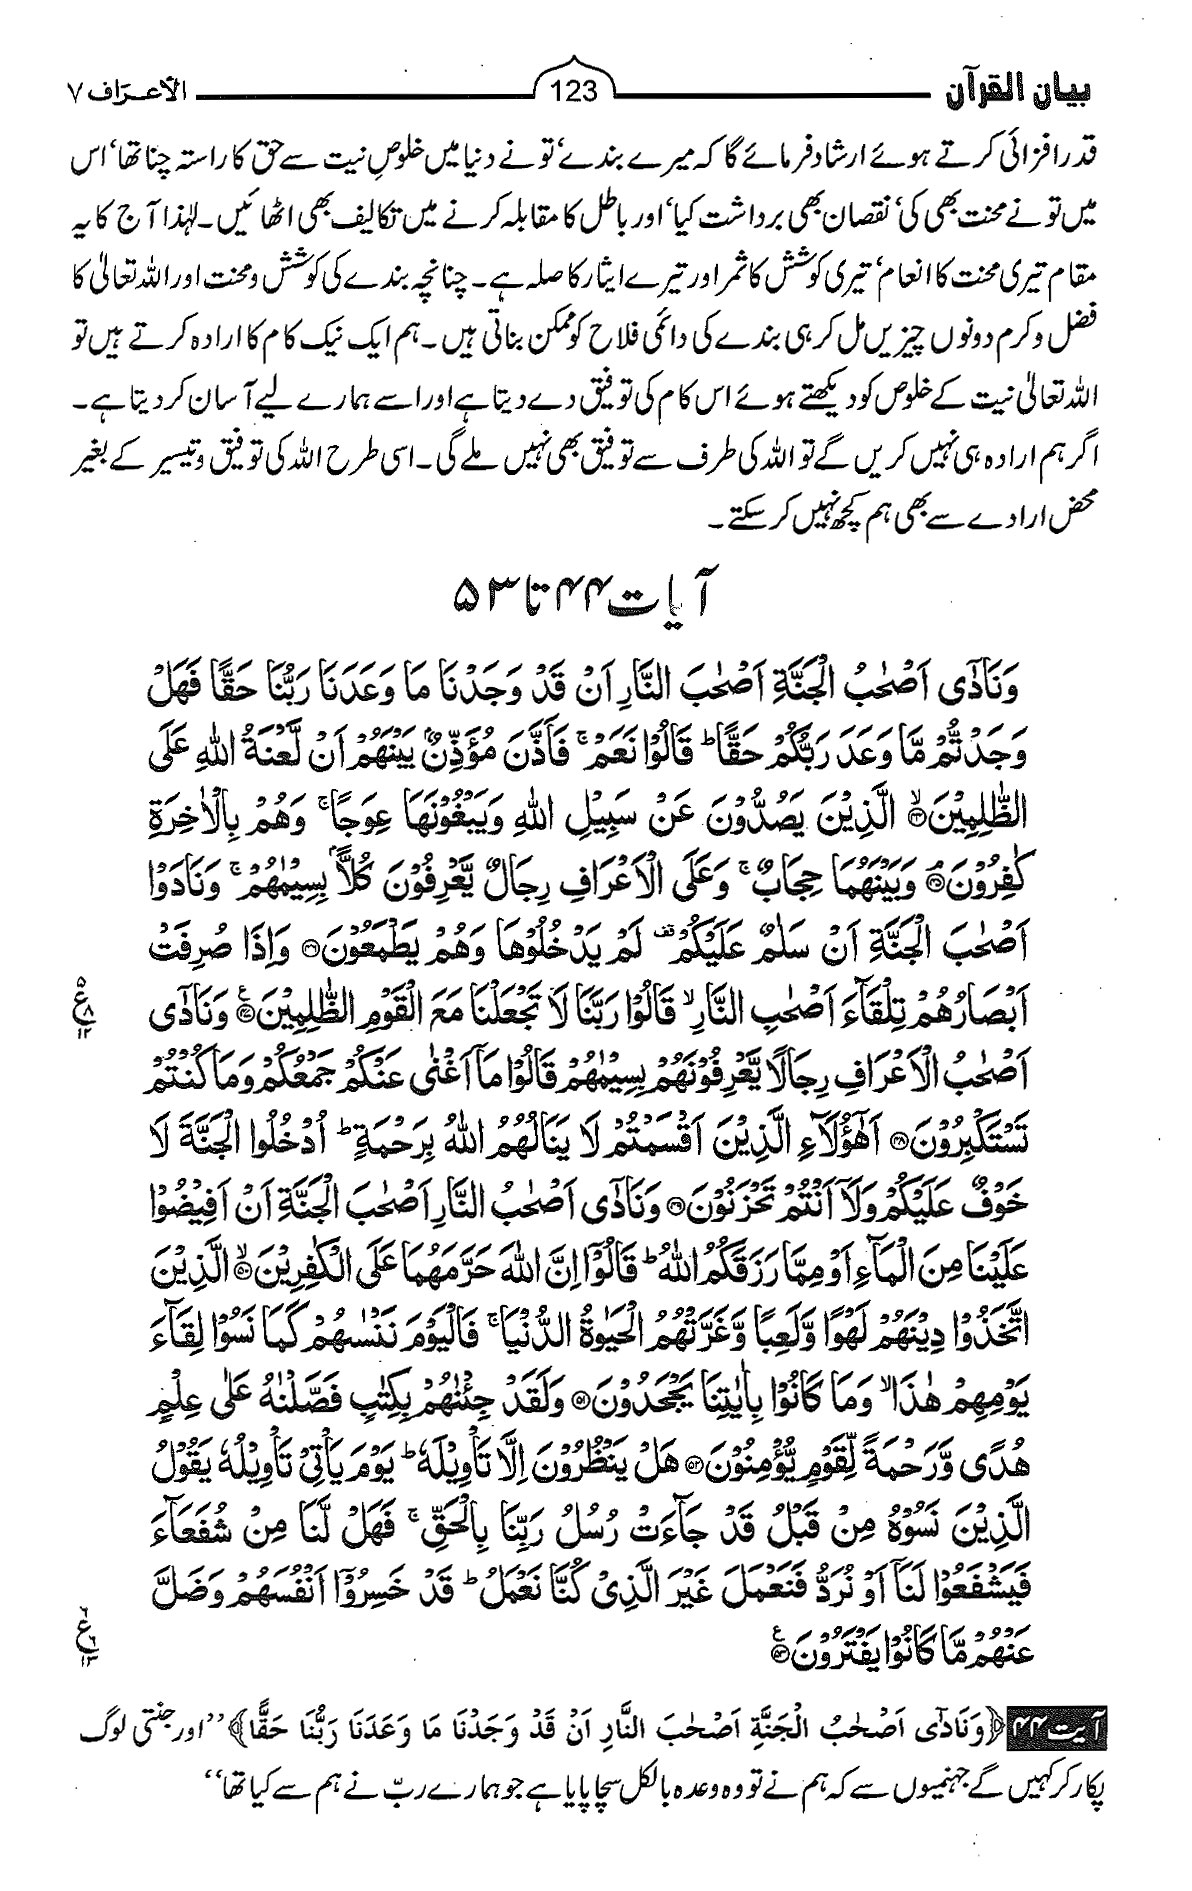 بیان القرآن 123 الاعراف ۷
قدر افزائی کرتے ہوئے ارشاد فرمائے گا کہ میرے بندے‘ تو نے دنیا میں خلوصِ نیت سے حق کا راستہ چنا تھا‘ اس
میں تو نے محنت بھی کی‘ نقصان بھی برداشت کیا‘ اور باطل کا مقابلہ کرنے میں تکالیف بھی اٹھائیں۔ لہٰذا آج کا یہ
مقام تیری محنت کا انعام‘ تیری کوشش کا ثمر اور تیرے ایثار کا صلہ ہے۔ چنانچہ بندے کی کوشش و محنت اور اللہ تعالیٰ کا
فضل و کرم دونوں چیزیں مل کر ہی بندے کی دائمی فلاح کو ممکن بناتی ہیں۔ ہم ایک نیک کام کا ارادہ کرتے ہیں تو
اللہ تعالیٰ نیت کے خلوص کو دیکھتے ہوئے اس کام کی توفیق دے دیتا ہے اور اسے ہمارے لیے آسان کر دیتا ہے۔
اگر ہم ارادہ ہی نہیں کریں گے تو اللہ کی طرف سے توفیق بھی نہیں ملے گی۔ اسی طرح اللہ کی توفیق و تیسیر کے بغیر
محض ارادے سے بھی ہم کچھ نہیں کر سکتے۔
آیات ۴۴ تا ۵۳
وَنَادٰٓی اَصْحٰبُ الْجَنَّةِ اَصْحٰبَ النَّارِ اَنْ قَدْ وَجَدْنَا مَا وَعَدَنَا رَبُّنَا حَقًّا فَهَلْ
وَجَدْتُّمْ مَّا وَعَدَ رَبُّكُمْ حَقًّا ؕ قَالُوْا نَعَمْ ۚ فَاَذَّنَ مُؤَذِّنٌۢ بَيْنَهُمْ اَنْ لَّعْنَةُ اللّٰهِ عَلَى
الظّٰلِمِيْنَ ۙ۴۴ الَّذِيْنَ يَصُدُّوْنَ عَنْ سَبِيْلِ اللّٰهِ وَيَبْغُوْنَهَا عِوَجًا ۚ وَهُمْ بِالْاٰخِرَةِ
كٰفِرُوْنَ ۘ۴۵ وَبَيْنَهُمَا حِجَابٌ ۚ وَعَلَى الْاَعْرَافِ رِجَالٌ يَّعْرِفُوْنَ كُلًّاۢ بِسِيْمٰىهُمْ ۚ وَنَادَوْا
اَصْحٰبَ الْجَنَّةِ اَنْ سَلٰمٌ عَلَيْكُمْ ۫ لَمْ يَدْخُلُوْهَا وَهُمْ يَطْمَعُوْنَ ۴۶ وَاِذَا صُرِفَتْ
اَبْصَارُهُمْ تِلْقَآءَ اَصْحٰبِ النَّارِ ۙ قَالُوْا رَبَّنَا لَا تَجْعَلْنَا مَعَ الْقَوْمِ الظّٰلِمِيْنَ ۴۷ وَنَادٰٓی
اَصْحٰبُ الْاَعْرَافِ رِجَالًا يَّعْرِفُوْنَهُمْ بِسِيْمٰىهُمْ قَالُوْا مَآ اَغْنٰى عَنْكُمْ جَمْعُكُمْ وَمَا كُنْتُمْ
تَسْتَكْبِرُوْنَ ۴۸ اَهٰٓؤُلَآءِ الَّذِيْنَ اَقْسَمْتُمْ لَا يَنَالُهُمُ اللّٰهُ بِرَحْمَةٍ ؕ اُدْخُلُوا الْجَنَّةَ لَا
خَوْفٌ عَلَيْكُمْ وَلَآ اَنْتُمْ تَحْزَنُوْنَ ۴۹ وَنَادٰٓی اَصْحٰبُ النَّارِ اَصْحٰبَ الْجَنَّةِ اَنْ اَفِيْضُوْا
عَلَيْنَا مِنَ الْمَآءِ اَوْ مِمَّا رَزَقَكُمُ اللّٰهُ ؕ قَالُوْٓا اِنَّ اللّٰهَ حَرَّمَهُمَا عَلَى الْكٰفِرِيْنَ ۙ۵۰ الَّذِيْنَ
اتَّخَذُوْا دِيْنَهُمْ لَهْوًا وَّلَعِبًا وَّغَرَّتْهُمُ الْحَيٰوةُ الدُّنْيَا ۚ فَالْيَوْمَ نَنْسٰىهُمْ كَمَا نَسُوْا لِقَآءَ
يَوْمِهِمْ هٰذَا ۙ وَمَا كَانُوْا بِاٰيٰتِنَا يَجْحَدُوْنَ ۵۱ وَلَقَدْ جِئْنٰهُمْ بِكِتٰبٍ فَصَّلْنٰهُ عَلٰى عِلْمٍ
هُدًى وَّرَحْمَةً لِّقَوْمٍ يُّؤْمِنُوْنَ ۵۲ هَلْ يَنْظُرُوْنَ اِلَّا تَاْوِيْلَهٗ ؕ يَوْمَ يَاْتِيْ تَاْوِيْلُهٗ يَقُوْلُ
الَّذِيْنَ نَسُوْهُ مِنْ قَبْلُ قَدْ جَآءَتْ رُسُلُ رَبِّنَا بِالْحَقِّ ۚ فَهَلْ لَّنَا مِنْ شُفَعَآءَ
فَيَشْفَعُوْا لَنَآ اَوْ نُرَدُّ فَنَعْمَلَ غَيْرَ الَّذِيْ كُنَّا نَعْمَلُ ؕ قَدْ خَسِرُوْٓا اَنْفُسَهُمْ وَضَلَّ
عَنْهُمْ مَّا كَانُوْا يَفْتَرُوْنَ ۵۳
آیت ۴۴ ﴿وَنَادٰٓی اَصْحٰبُ الْجَنَّةِ اَصْحٰبَ النَّارِ اَنْ قَدْ وَجَدْنَا مَا وَعَدَنَا رَبُّنَا حَقًّا﴾ ’’اور جنتی لوگ
پکار کر کہیں گے جہنمیوں سے کہ ہم نے تو وہ وعدہ بالکل سچا پایا ہے جو ہمارے ربّ نے ہم سے کیا تھا‘‘